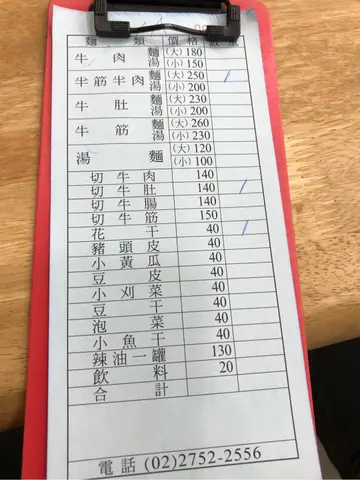 麵類 價格 數量
牛肉麵湯 (大) 180
(小) 150
半筋半肉麵湯 (大) 250
(小) 200
牛肚麵湯 (大) 230
(小) 200
牛筋麵湯 (大) 260
(小) 230
湯麵 (大) 120
(小) 100
切牛肉 140
切牛肚 140
切牛腸 140
切牛筋 150
花干 40
豬頭皮 40
小黃瓜 40
豆皮 40
小刈菜 40
豆干 40
泡菜 40
小魚干 40
辣油一罐 130
飲料 20
合計
電話 (02)2752-2556